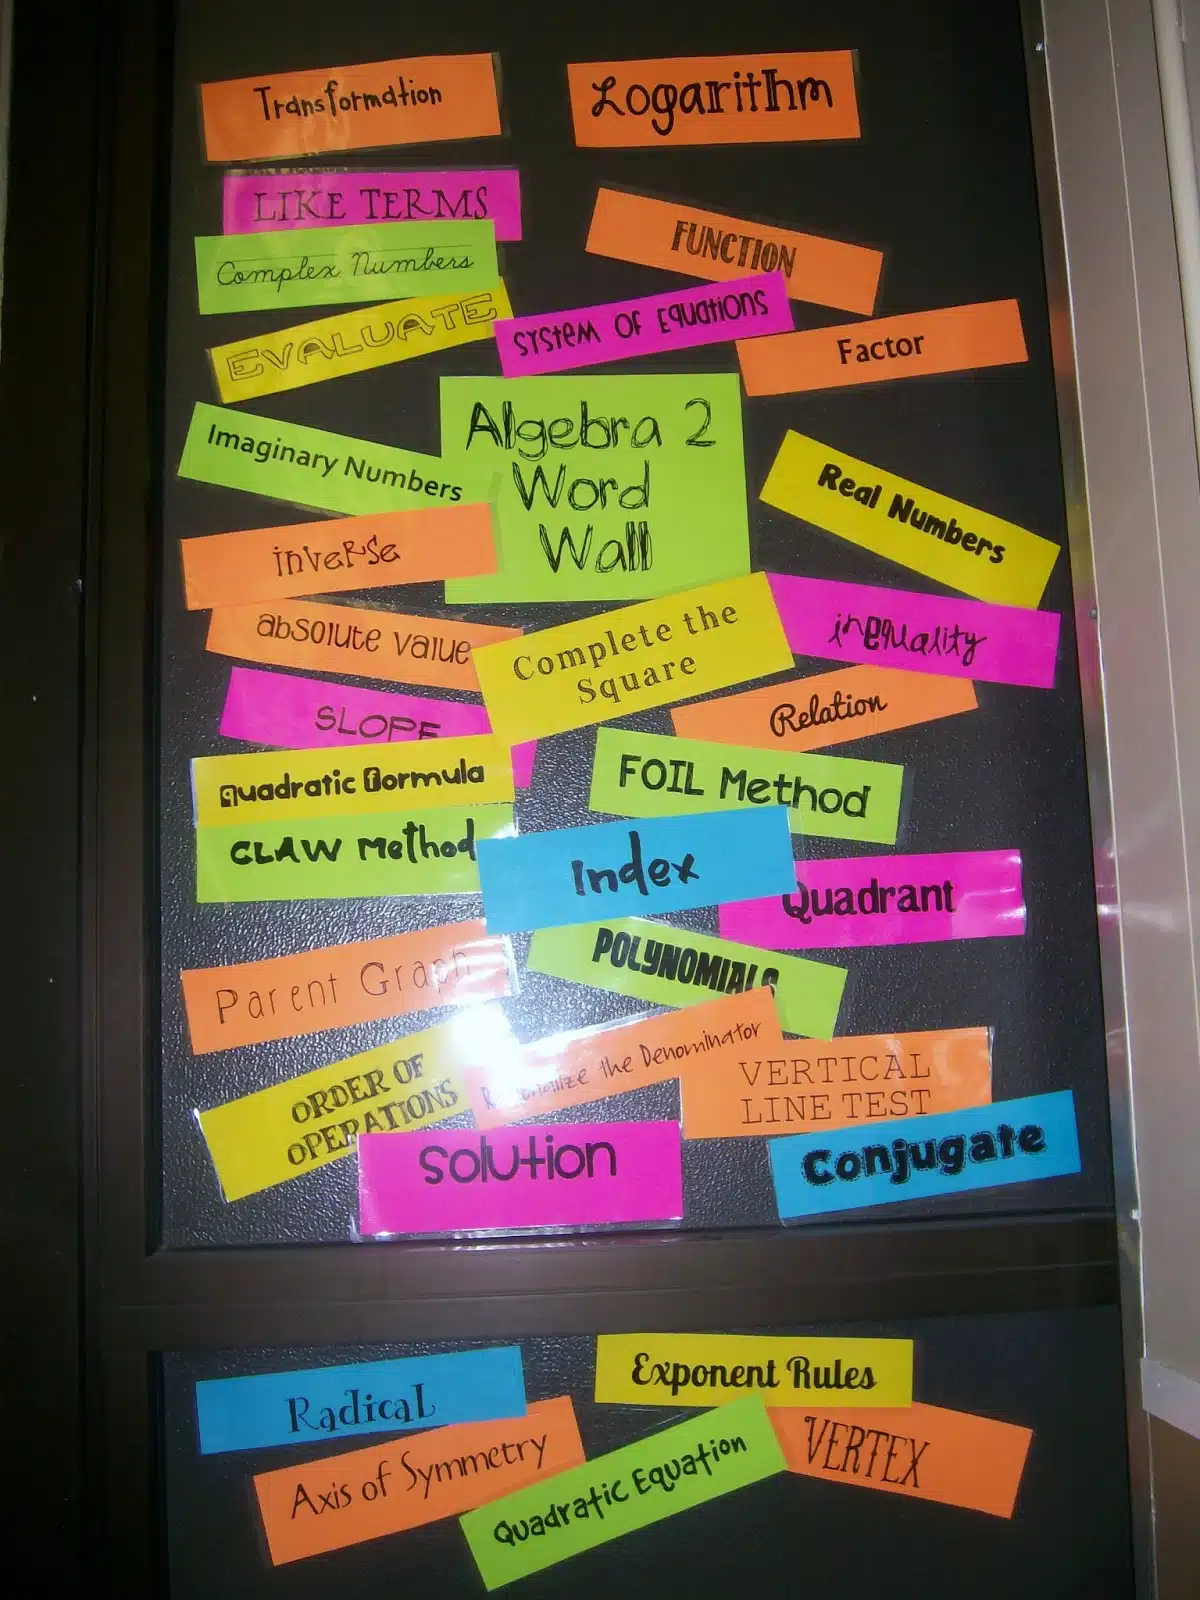 Transformation
Logarithm
LIKE TERMS
FUNCTION
Complex Numbers
EVALUATE
System of Equations
Factor
Algebra 2
Word
Wall
Imaginary Numbers
Real Numbers
inverse
absolute value
Complete the
Square
inequality
SLOPE
Relation
Quadratic Formula
FOIL Method
CLAW Method
Index
Quadrant
Parent Graph
POLYNOMIALS
ORDER OF
OPERATIONS
Rationalize the Denominator
VERTICAL
LINE TEST
Solution
Conjugate
Radical
Exponent Rules
Axis of Symmetry
Quadratic Equation
VERTEX